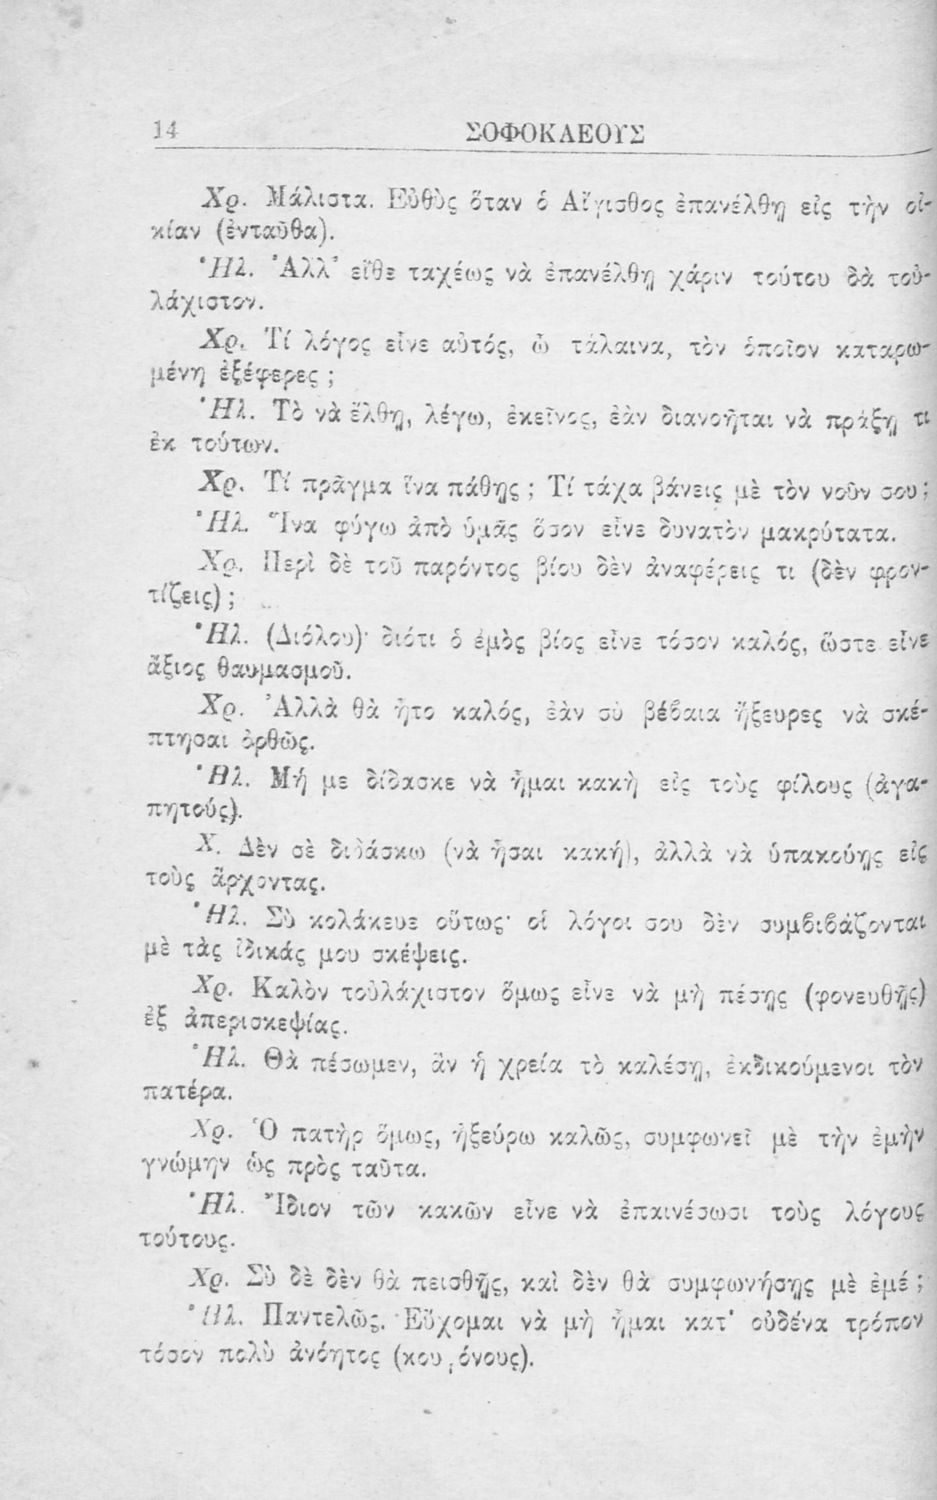 14 ΣΟΦΟΚΛΕΟΥΣ
Χρ. Μάλιστα. Εὐθὺς ὅταν ὁ Αἴγισθος ἐπανέλθῃ εἰς τὴν οἰ-
κίαν (ἐνταῦθα).
Ἠλ. Ἀλλ' εἴθε ταχέως νὰ ἐπανέλθῃ χάριν τούτου δὰ τοὐ-
λάχιστον.
Χρ. Τί λόγος εἶνε αὐτός, ὦ τάλαινα, τὸν ὁποῖον καταρω-
μένη ἐξέφερες ;
Ἠλ. Τὸ νὰ ἔλθῃ, λέγω, ἐκεῖνος, ἐὰν διανοῆται νὰ πράξῃ τι
ἐκ τούτων.
Χρ. Τί πρᾶγμα ἵνα πάθῃς ; Τί τάχα βάνεις μὲ τὸν νοῦν σου ;
Ἠλ. Ἵνα φύγω ἀπὸ ὑμᾶς ὅσον εἶνε δυνατὸν μακρύτατα.
Χρ. Περὶ δὲ τοῦ παρόντος βίου δὲν ἀναφέρεις τι (δὲν φρον-
τίζεις) ;
Ἠλ. (Διόλου)· διότι ὁ ἐμὸς βίος εἶνε τόσον καλός, ὥστε εἶνε
ἄξιος θαυμασμοῦ.
Χρ. Ἀλλὰ θὰ ἦτο καλός, ἐὰν σὺ βέβαια ἤξευρες νὰ σκέ-
πτησαι ὀρθῶς.
Ἠλ. Μή με δίδασκε νὰ ἦμαι κακὴ εἰς τοὺς φίλους (ἀγα-
πητούς).
Χ. Δὲν σὲ διδάσκω (νὰ ἦσαι κακή), ἀλλὰ νὰ ὑπακούῃς εἰς
τοὺς ἄρχοντας.
Ἠλ. Σὺ κολάκευε οὕτως· οἱ λόγοι σου δὲν συμβιβάζονται
μὲ τὰς ἰδικάς μου σκέψεις.
Χρ. Καλὸν τοὐλάχιστον ὅμως εἶνε νὰ μὴ πέσῃς (φονευθῇς)
ἐξ ἀπερισκεψίας.
Ἠλ. Θὰ πέσωμεν, ἂν ἡ χρεία τὸ καλέσῃ, ἐκδικούμενοι τὸν
πατέρα.
Χρ. Ὁ πατὴρ ὅμως, ἠξεύρω καλῶς, συμφωνεῖ μὲ τὴν ἐμὴν
γνώμην ὡς πρὸς ταῦτα.
Ἠλ. Ἴδιον τῶν κακῶν εἶνε νὰ ἐπαινέσωσι τοὺς λόγους
τούτους.
Χρ. Σὺ δὲ δὲν θὰ πεισθῇς, καὶ δὲν θὰ συμφωνήσῃς μὲ ἐμέ ;
Ἠλ. Παντελῶς. Εὔχομαι νὰ μὴ ἦμαι κατ' οὐδένα τρόπον
τόσον πολὺ ἀνόητος